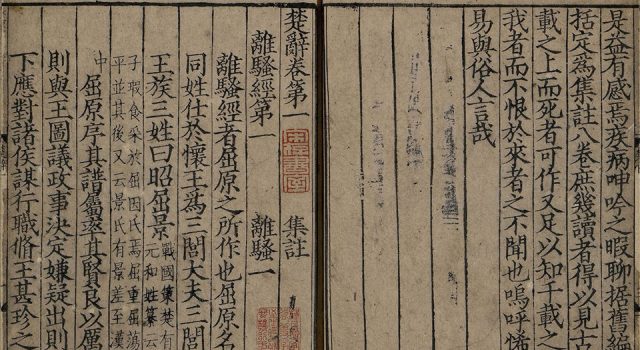 是益有感焉疾病呻吟之暇聊据舊編
括定爲集註八卷庶幾讀者得以見古
載之上而死者可作又足以知千載之
我者而不恨於來者之不聞也嗚呼悕
易與俗人言哉
楚辭卷第一 集註
離騷經第一 離騷一
離騷經者屈原之所作也屈原名
同姓仕於懷王爲三閭大夫三閭
王族三姓曰昭屈景
戰國策楚有
元和姓纂云
子瑕食采於屈因氏焉屈重屈蕩
平並其後又云景氏有景差至漢
中 屈原序其譜屬率其賢良以厲
則與王圖議政事決定嫌疑出則
下應對諸侯謀行職脩王甚珍之